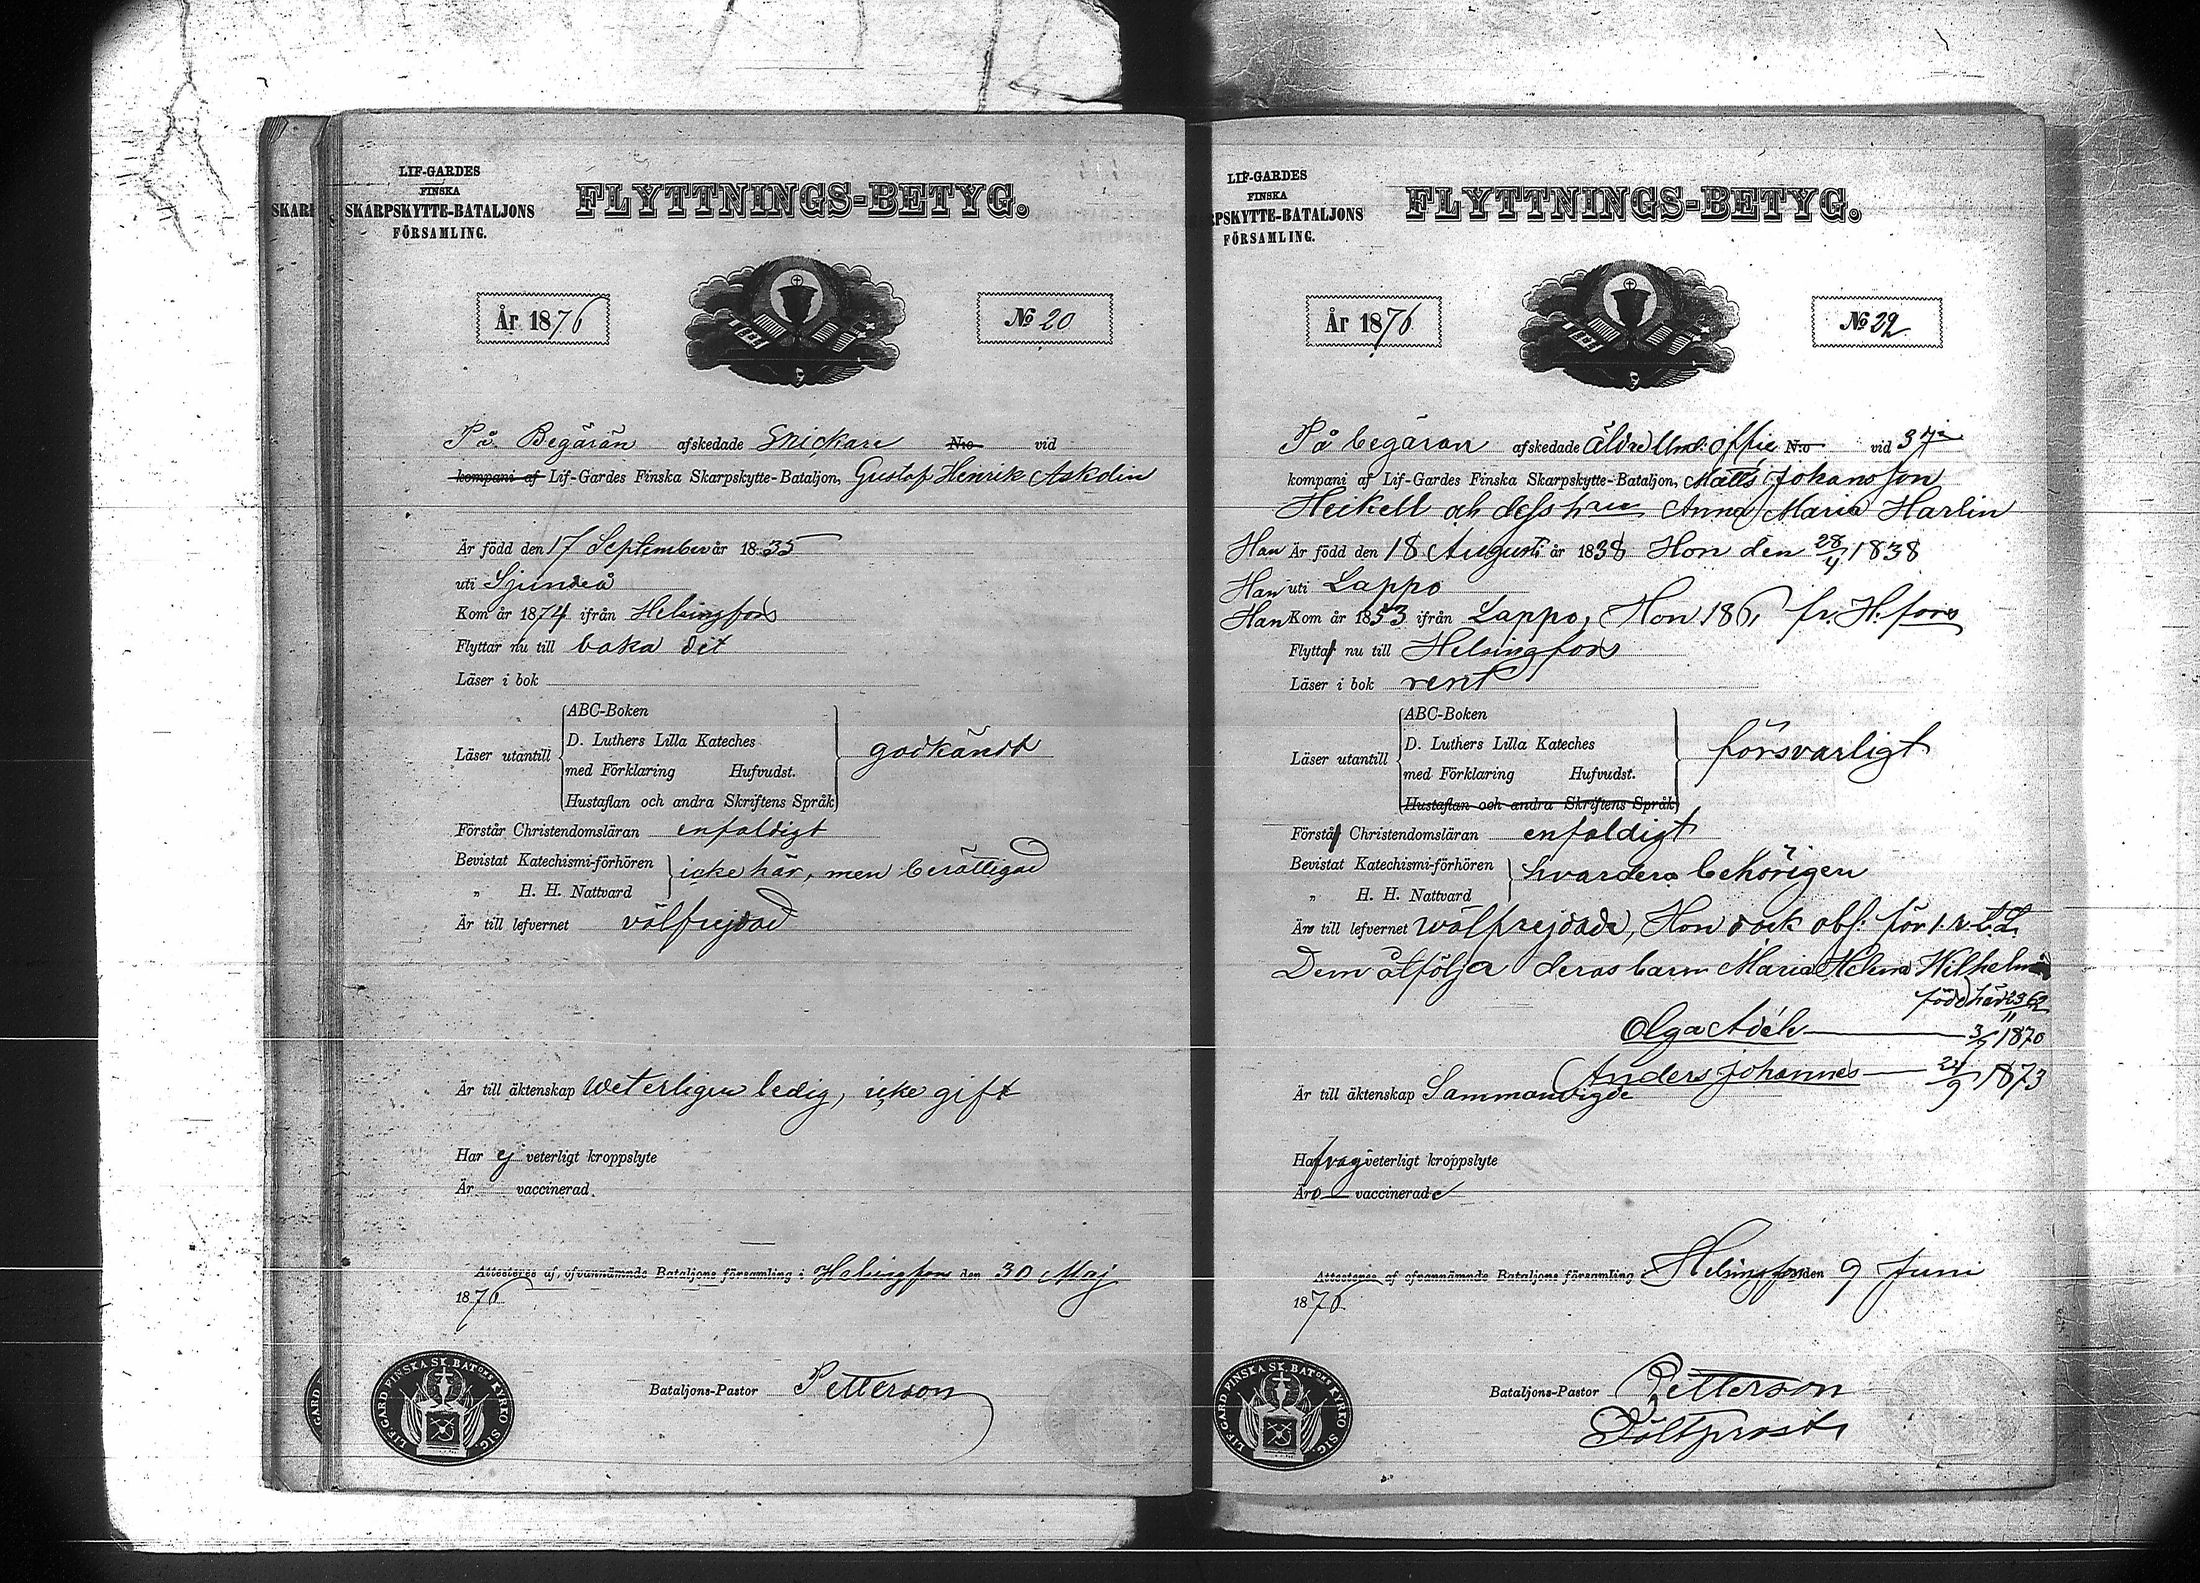 SKARP
LIF-GARDES
FINSKA
SKARPSKYTTE-BATALJONS
FÖRSAMLING.
FLYTTNINGS-BETYG.
År 1876
№ 20
På Begäran afskedade Snickare N:o vid
kompani af Lif-Gardes Finska Skarpskytte-Bataljon, Gustaf Henrik Askolin
Är född den 17 September år 1835
uti Sjundeå
Kom år 1874 ifrån Helsingfors
Flyttar nu till baka dit
Läser i bok
Läser utantill
ABC-Boken
D. Luthers Lilla Kateches
med Förklaring Hufvudst.
Hustaflan och andra Skriftens Språk
godkändt
Förstår Christendomsläran enfaldigt
Bevistat Katechismi-förhören
„ H. H. Nattvard
icke här, men berättigad
Är till lefvernet välfrejdad
Är till äktenskap Weterligen ledig, icke gift
Har ej veterligt kroppslyte
Är vaccinerad.
Attesteras af, ofvannämnde Bataljons församling i Helsingfors den 30 Maj
1876
Bataljons-Pastor Petterson
LIF. GARD FINSKA SK. BAT:ONS KYRKO SIG.
LIF-GARDES
FINSKA
RPSKYTTE-BATALJONS
FÖRSAMLING.
FLYTTNINGS-BETYG.
År 1876
№ 22
På begäran afskedade äldre Und: offic N:o vid 3je
kompani af Lif-Gardes Finska Skarpskytte-Bataljon, Matts Johansson
Heikell och dess hru Anna Maria Harlin
Han Är född den 18 Augusti år 1838 Hon den 28/4 1838
Han uti Lappo
Han Kom år 1853 ifrån Lappo, Hon 1861 fr. H:fors
Flytta nu till Helsingfors
Läser i bok rent
Läser utantill
ABC-Boken
D. Luthers Lilla Kateches
med Förklaring Hufvudst.
Hustaflan och andra Skriftens Språk
försvarligt
Förstå Christendomsläran enfaldigt
Bevistat Katechismi-förhören
„ H. H. Nattvard
hvardera behörigen
Äro till lefvernet wälfrejdade, Hon dock abs: för l. v. t. L.
Dem åtfölja deras barn Maria Helena Wilhelmina
född här 23/11 62
Olga Adéle 3/5 1870
Anders Johannes 24/9 1873
Är till äktenskap Sammanvigde
Ha veterligt kroppslyte
Äro vaccinerade
Attesteras af ofvannämnde Bataljons församling Helsingfors den 9 Juni
1876
Bataljons-Pastor Petterson
Fältprost
LIF. GARD FINSKA SK. BAT:ONS KYRKO SIG.